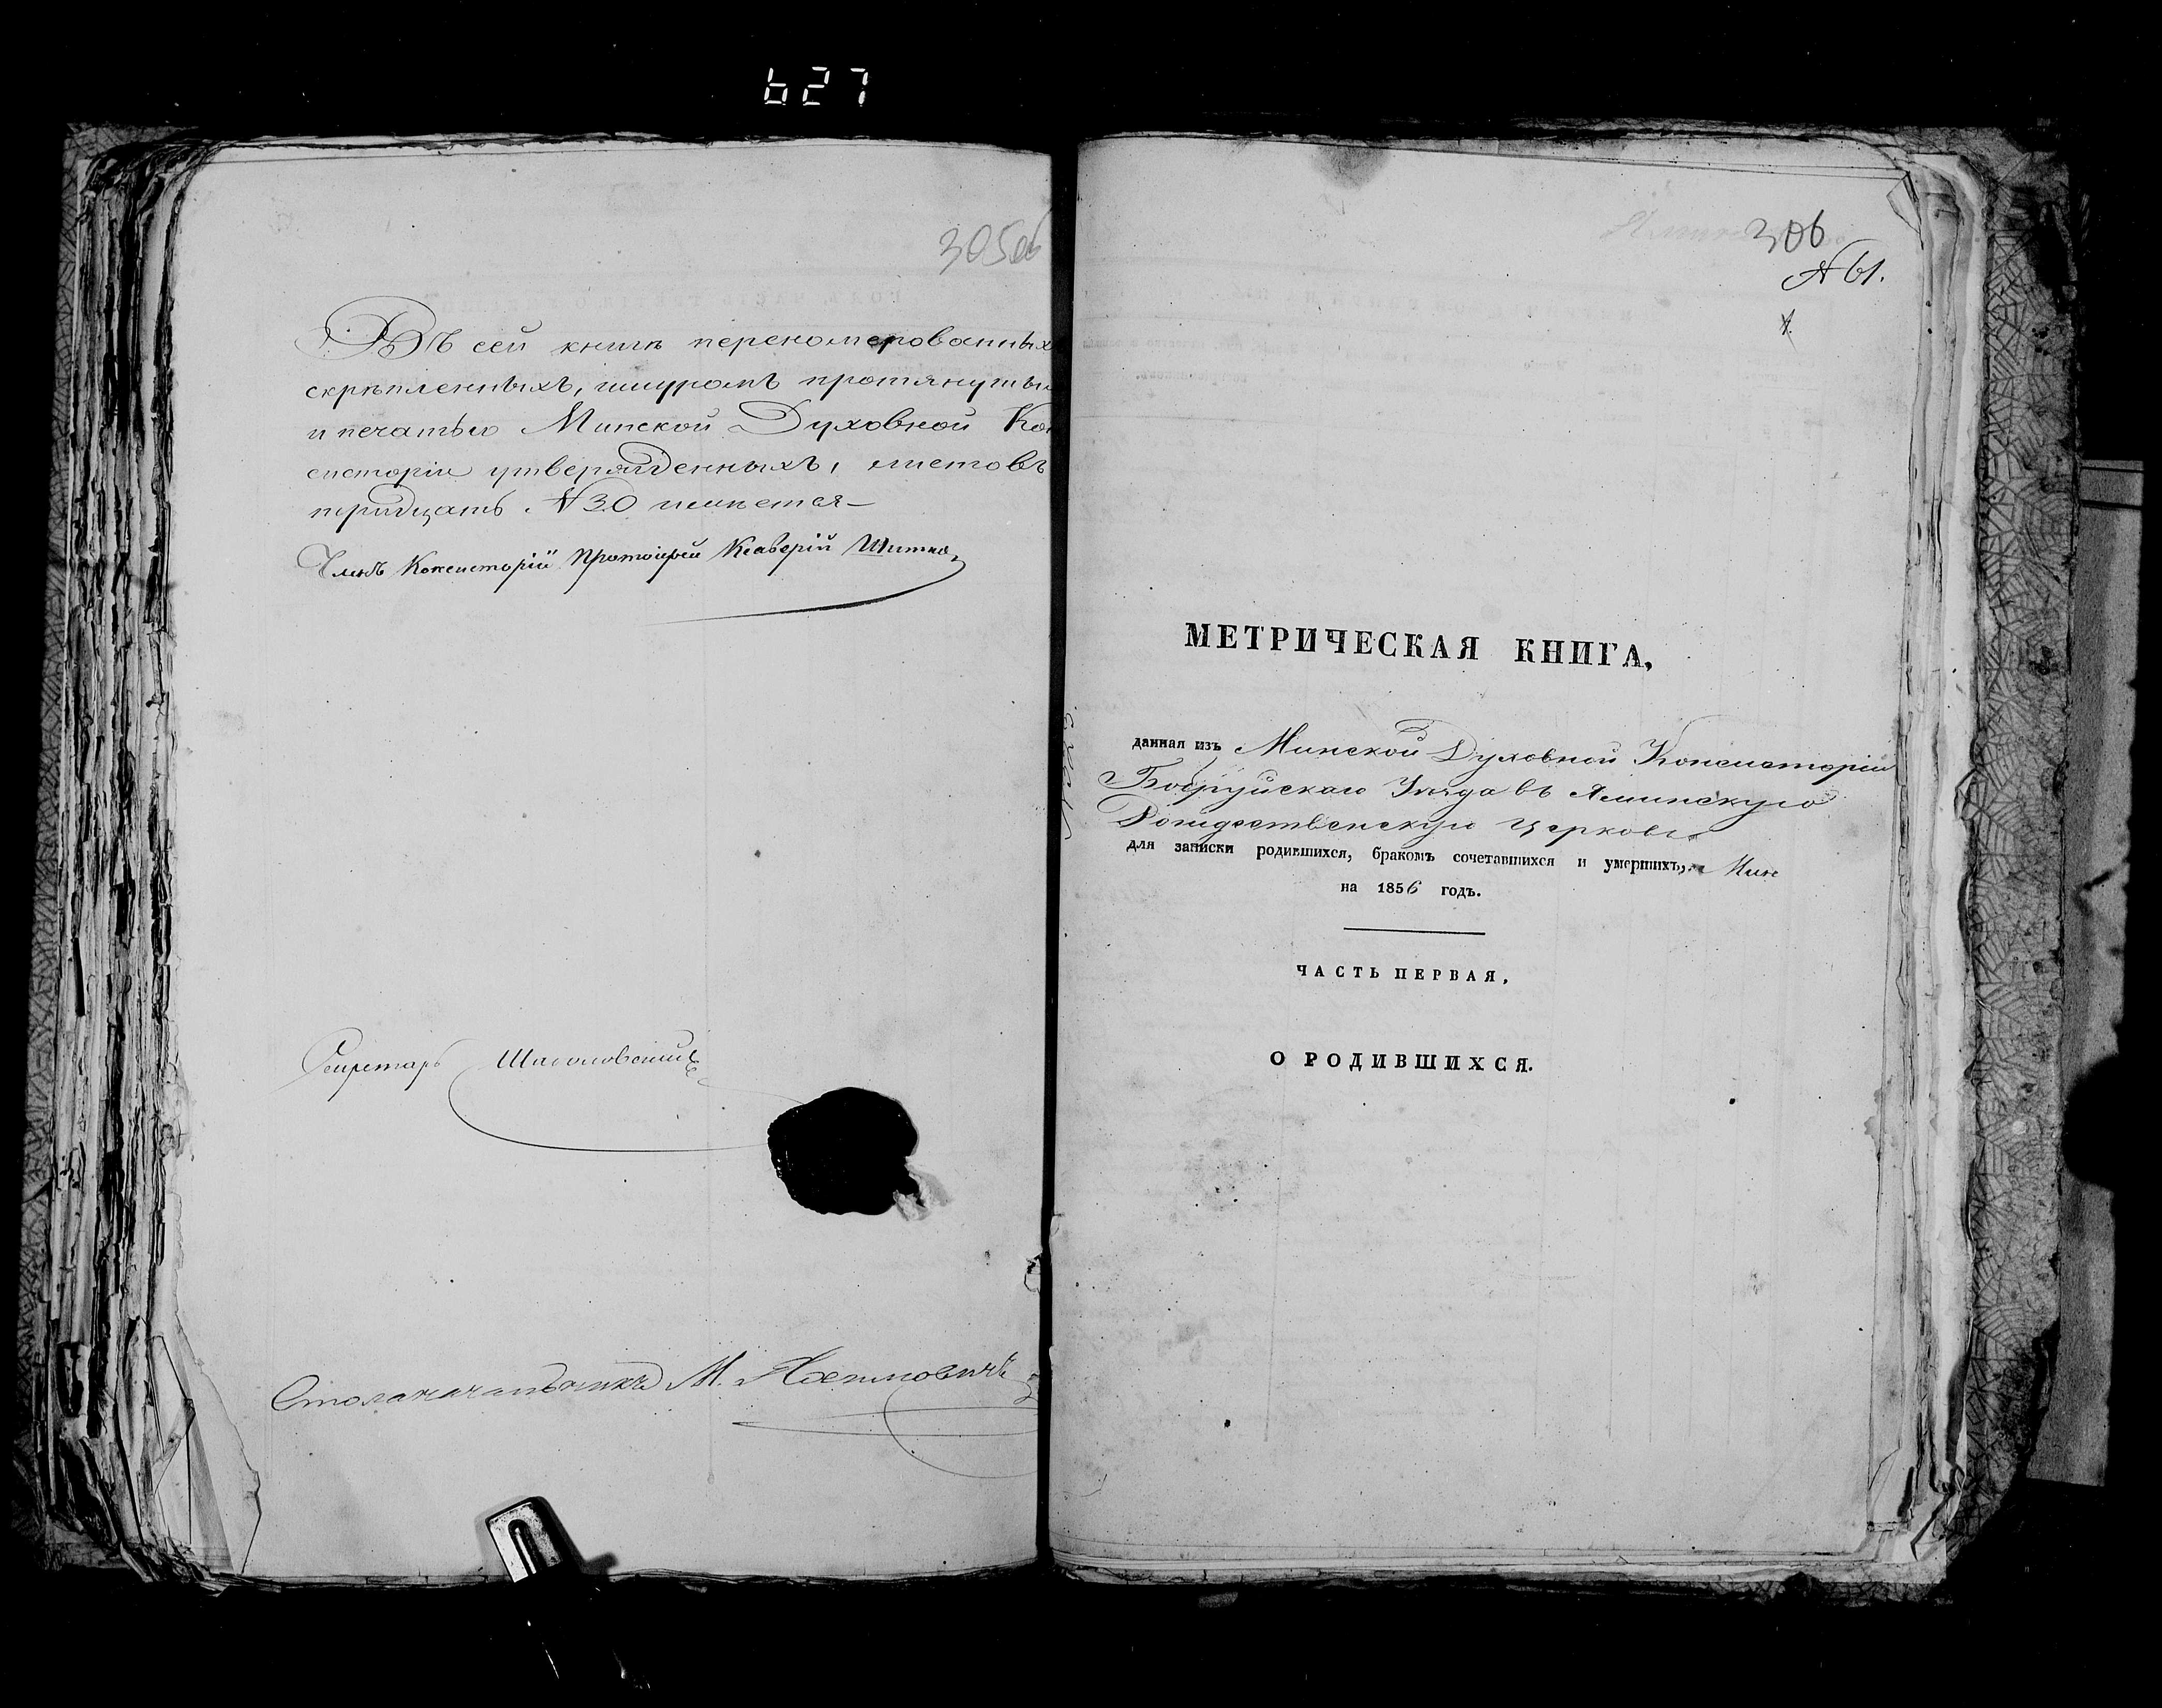 627
305об
Въ сей книгѣ перекомерованныхъ
скрѣпленныхъ, шнуромъ протянутых
и печатью Минской Духовной Кон
систоріи утвержденныхъ, листовъ
тридцать N 30 имѣется
Членъ Консисторіи Протоіерей Ксаверій
Секретарь
Столоначальникъ М.
306
N 61.
МЕТРИЧЕСКАЯ КНИГА,
данная изъ Минской Духовной Консисторіи
Бобруйскаго Уѣзда въ Яминскую
Рождественскую церковь
для записки родившихся, бракомъ сочетавшихся и умершихъ,
на 1856 годъ.
ЧАСТЬ ПЕРВАЯ,
О РОДИВШИХСЯ.